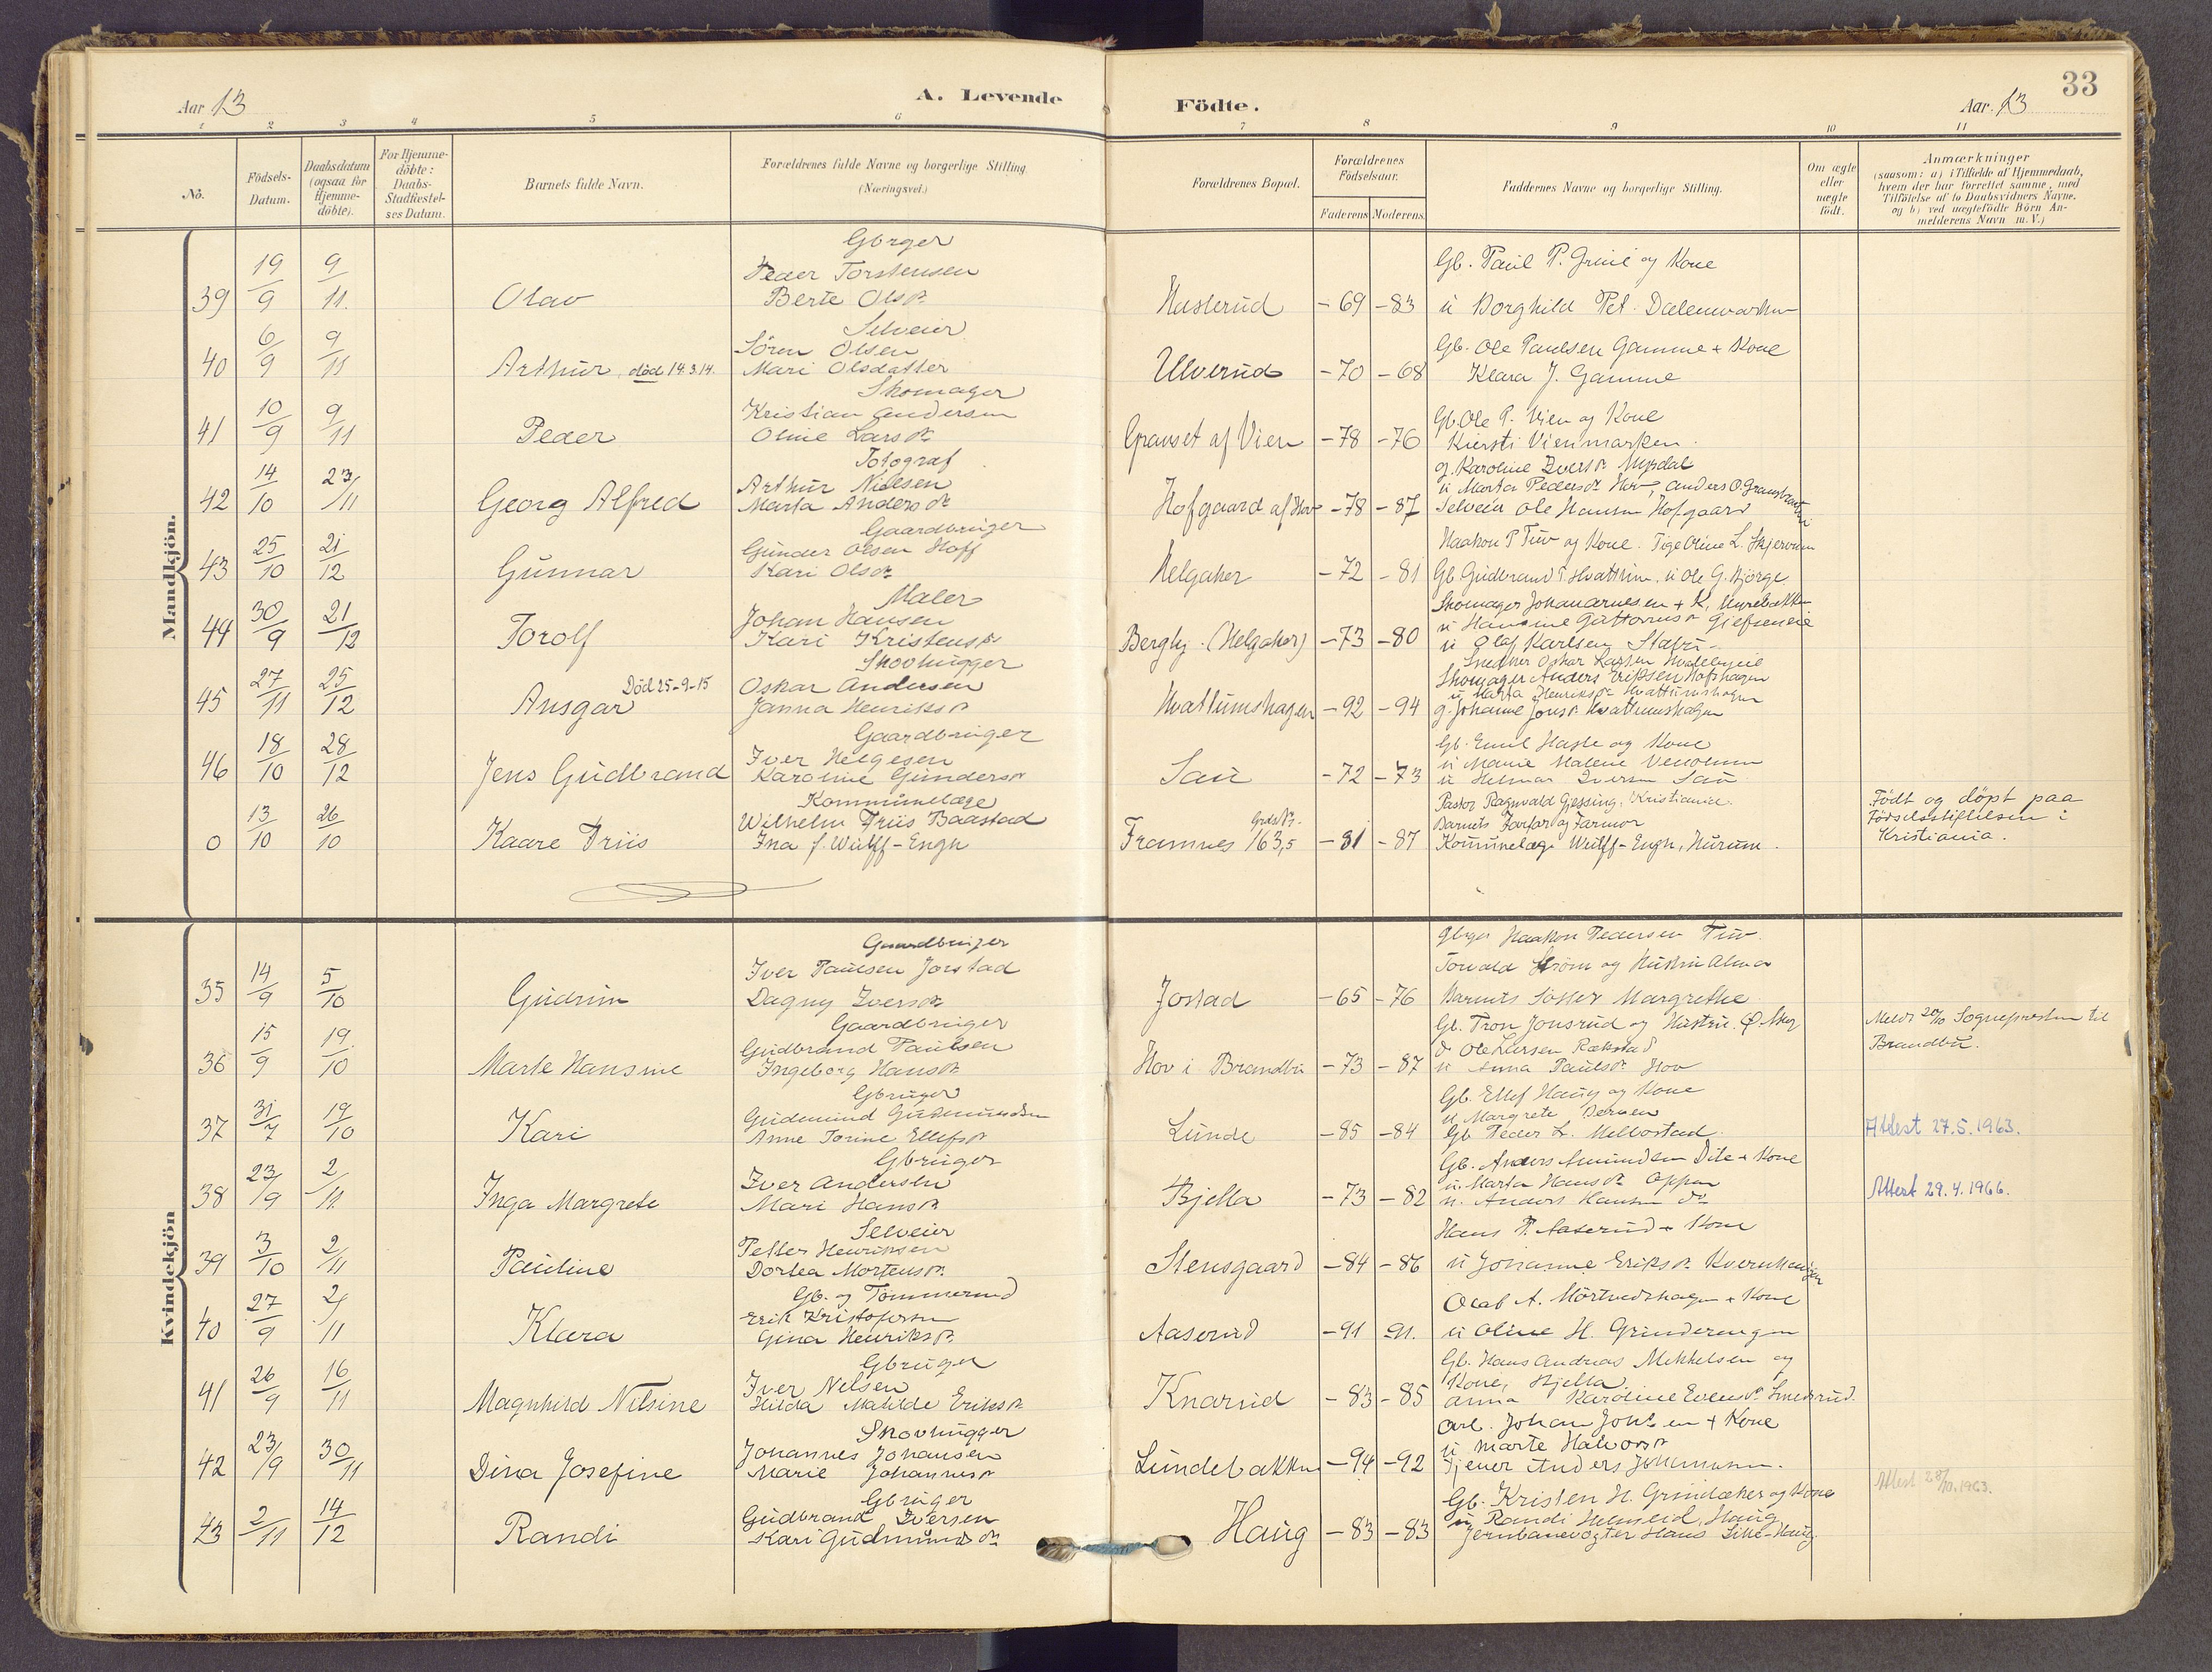 33
Aar 13
A. Levende Födte.
Aar 13
1 2 3 4 5 6 7 8 9 10 11
No.
Födsels-Datum.
Daabsdatum (ogsaa for Hjemme-döbte).
For Hjemme-döbte: Daabs-Stadfæstel-ses Datum.
Barnets fulde Navn.
Forældrenes fulde Navne og borgerlige Stilling (Næringsvei.)
Forældrenes Bopæl.
Forældrenes Födselsaar.
Faderens Moderens
Faddernes Navne og borgerlige Stilling.
Om ægte eller uægte födt.
Anmærkninger
(saasom: a) i Tilfælde af Hjemmedaab,
hvem der har forrettet samme, med
Tilföielse af to Daabsvidners Navne.
og b) ved uægtefödte Börn An-
melderens Navn m. V.)
Mandkjön.
39 19/9 9/11. Olav
Peder Torstensen
Berte Olsdr.
Hasterud -69 -83
Gb. Paul P. Grini og Kone
40 6/9 9/11 Arthur, död 14.3.14.
Selveier
Sören Olsen
Mari Olsdatter
Ulverud -70 -68
Gb. Ole Paulsen Gamme + Kone
Klara J. Gamme
41 10/9 9/11 Peder
Skomager
Kristian Andersen
Oline Larsdr.
af Vien -78 -76
Gb. Ole P. Vien og Kone
Kiersti Vienmarken.
42 14/10 23/11 Georg Alfred
Fotograf
Arthur Nielsen
Marta Andersdr.
Hofgaard af Hov -78 -87
Selveier Ole Hansen Hofgaard
43 25/10 21/12 Gunnar
Gaardbruger
Gunder Olsen Hoff
Kari Olsdr.
Helgaker -72 -81
Haakon P. Tuv og Kone. Pige Oline L. Skjervum
Gb. Gudbrand P. Hvattum, u Ole G. Bjørge
44 30/9 21/12 Torolf
Maler
Johan Hansen
Kari Kristensdr.
Bergly. (Helgaker) -73 -80
u Olaf Karlsen
45 27/11 25/12 Ansgar Död 25-9-15
Skovhugger
Oskar Andersen
Janna Henriksdr.
Hvattumshagen -92 -94
Skomager Anders Eriksen Hofshagen
u Marta Henriksdr. Hvattumshagen
g. Johanne Jonsdr. Hvattumshagen
46 18/10 28/12 Jens Gudbrand
Gaardbruger
Iver Helgesen
Karoline Gundersdr.
Sau -72 -73
Gb. Emil Haste og Kone
u Helmer Iversen Sau
0 13/10 26/10 Kaare Friis
Kommunelæge
Wilhelm Friis Baastad
Ina f. Wulff-Engh
Framnes 163,5 -81 -87
Pastor Ragnvald Gjessing, Kristiania.
Barnets Farfar og Farmor
Kommunelæge Wulff-Engh, Hurum.
Födt og döpt paa
Födselsstiftelsen i
Kristiania.
Kvindekjön
35 14/9 5/10 Gudrun
Gaardbruger
Iver Paulsen Jorstad
Dagny Iversdr.
Jostad -65 -76
Haakon Pedersen Tuv.
Torvald Strøm og Hustru Alma
Barnets Søster Margrethe
36 15/9 19/10 Marte Hansine
Gaardbruger
Gudbrand Paulsen
Ingeborg Hansdr.
Hov i Brandbu -73 -87
Gb. Tron Jonsrud og Hustru.
Ole Larsen Rækstad
u Anna Paulsdr. Hov
Meldt 20/10 Sognepresten til
Brandbu.
37 31/7 19/10 Kari
Gbruger
Gudmund Gudmundsen
Anne Torine Ellefsdr.
Lunde -85 -84
Gb. Ellef Haug og Kone
Gb Peder L. Melbostad.
Attest 27.5.1963.
38 23/9 2/11. Inga Margrete
Gbruger
Iver Andersen
Mari Hansdr.
Bjella -73 -82
Gb. Anders Amundsen + Kone
u. Marta Hansdr. Oppen
u. Anders Hansen do
Attest 29.4.1966.
39 3/10 2/11 Pauline
Selveier
Petter Henriksen
Dortea Mortensdr.
Stensgaard -84 -86
Hans P. Aaserud + Kone
u Johanne Eriksdr.
40 27/9 2/11 Klara
Gb. og Tømmermd
Erik Kristofersen
Gina Henriksdr.
Aaserud -91 -91.
Olaf A. Mörtvedshagen + Kone
u Oline H. Grinderengen
41 26/9 16/11 Magnhild Nilsine
Gbruger
Iver Nelsen
Hilda Matilde Eriksdr.
Knarud -83 -85
Gb. Hans Andreas Mikkelsen og
Kone, Bjella
Anna Karoline Evensdr. Smedsrud.
42 23/9 30/11 Dina Josefine
Skovhugger
Johannes Johansen
Marie Johannesdr.
Lundebakken -94 -92
Arb. Johan Johnsen + Kone
u Marte Halvorsdr
Tjener Anders Johannesen.
43 2/11 14/12 Randi
Gbruger
Gudbrand Iversen
Kari Gudmundsdr.
Haug -83 -83
Gb. Kristen H. Grindaker og Kone
u Randi Helmeid, Haug
Jernbanevogter Hans Lille-Haug
Attest 28/10.1963.